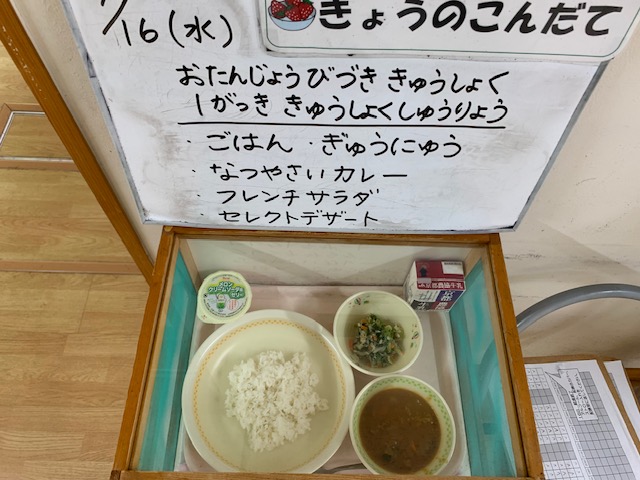 きょうのこんだて
16(水)
おたんじょうびづき きゅうしょく
1がっき きゅうしょくしゅうりょう
・ごはん ・ぎゅうにゅう
・なつやさいカレー
・フレンチサラダ
・セレクトデザート
メロン
クリームソーダ
ゼリー